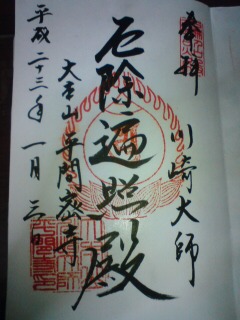 奉拝
川崎大師
厄除遍照殿
大本山 平間寺
平成二十三年一月三日